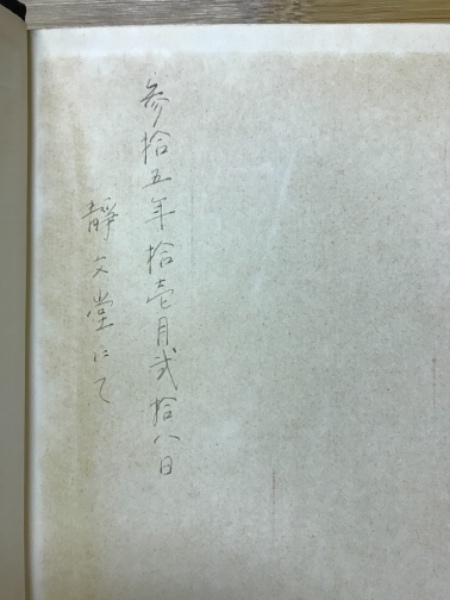 参拾五年拾壱月弐拾八日
靜文堂にて